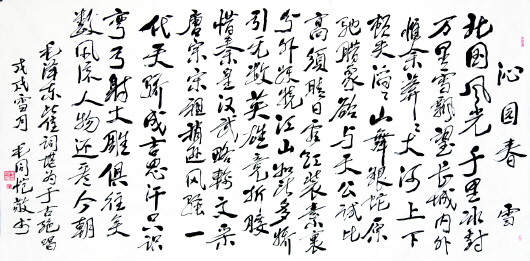 沁园春 雪
北国风光千里冰封
万里雪飘望长城内外
惟余莽々大河上下
顿失滔々山舞银蛇原
驰腊象欲与天公试比
高须晴日看红装素裹
分外妖娆江山如此多娇
引无数英雄竞折腰
惜秦皇汉武略输文采
唐宗宋祖稍逊风骚一
代天骄成吉思汗只识
弯弓射大雕俱往矣
数风流人物还看今朝
毛泽东此词堪为千古绝唱
戊戌雪月 毛同 敬书